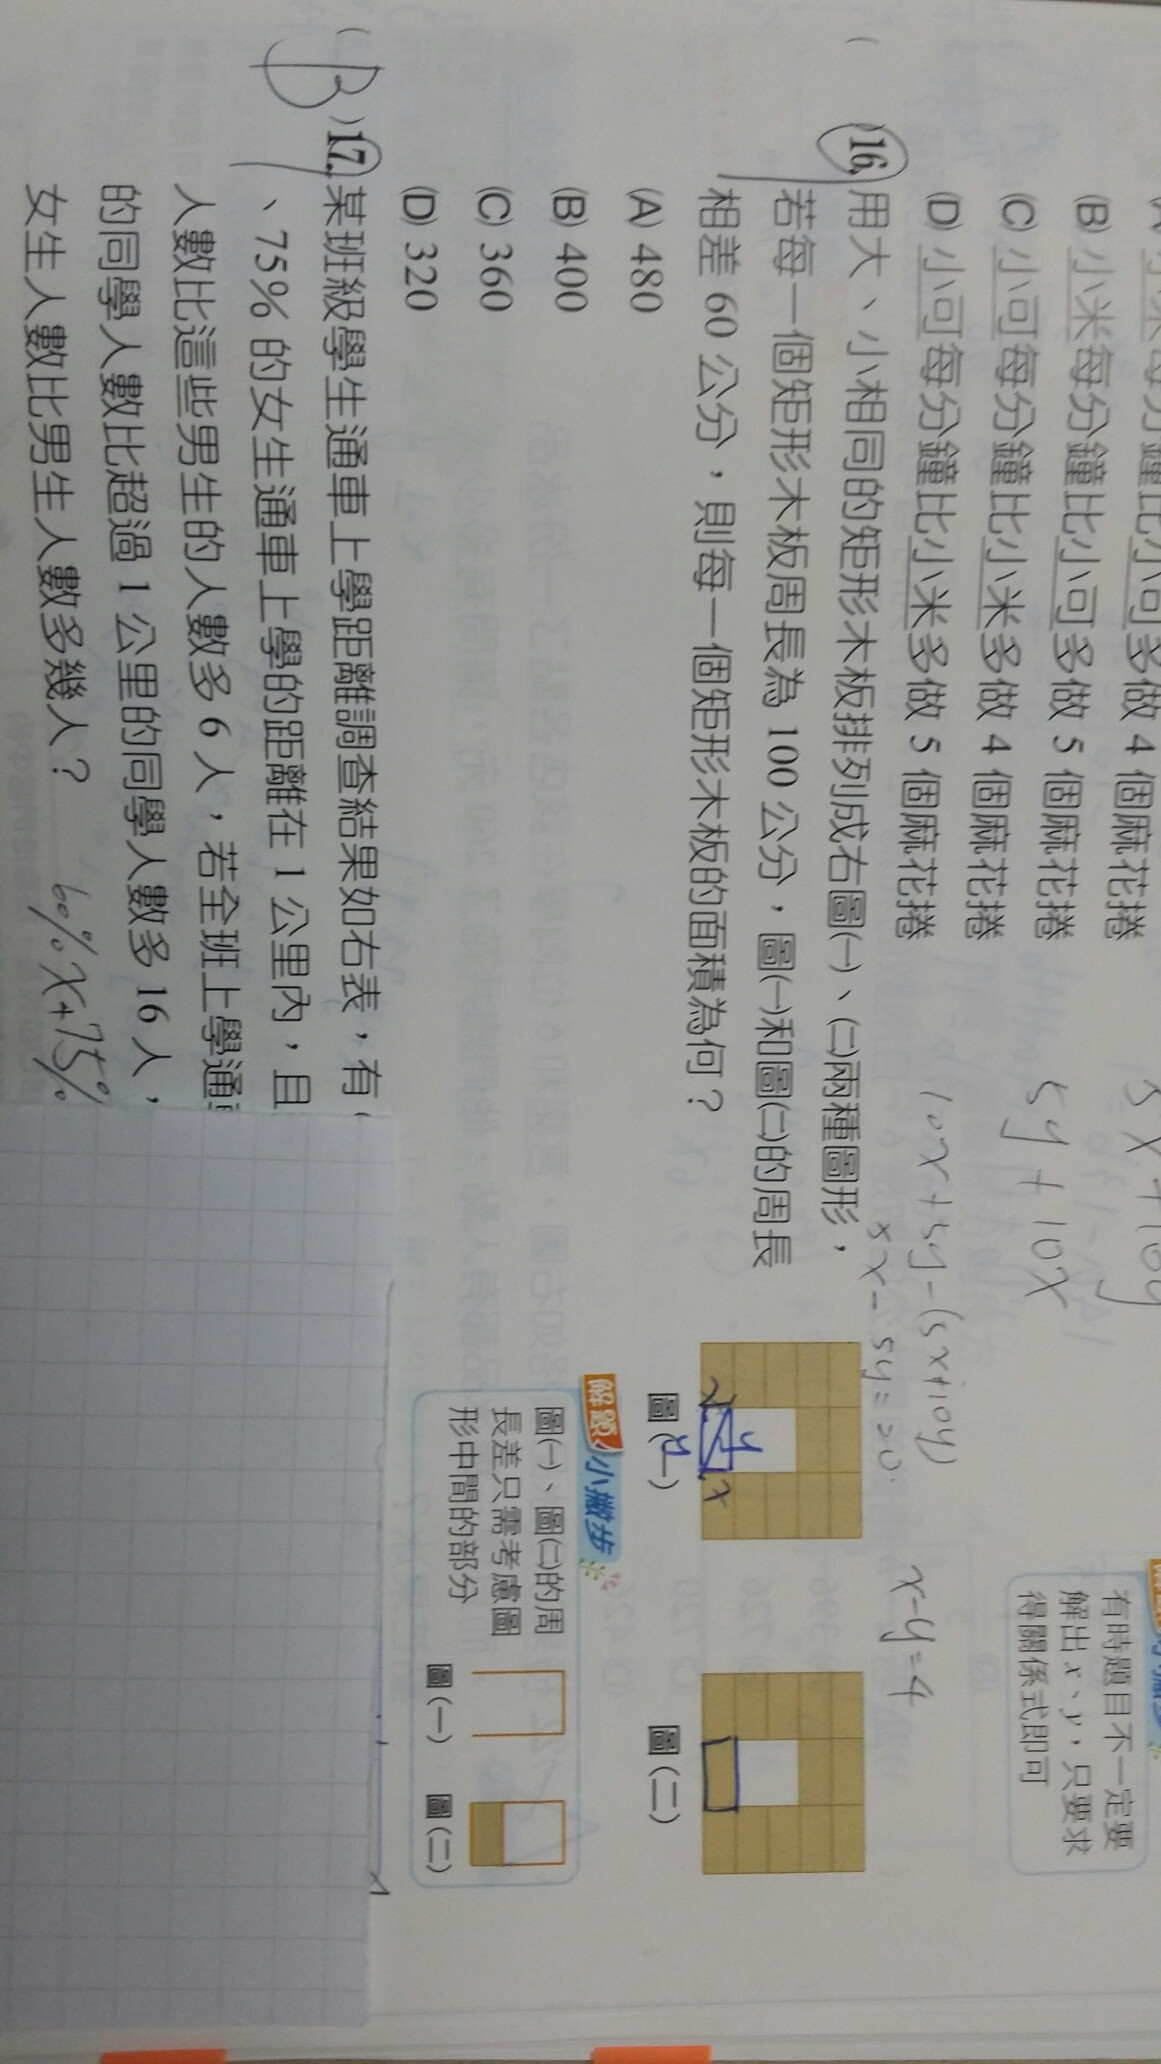 小米每分鐘比小可多做 4 個麻花捲
(B) 小米每分鐘比小可多做 5 個麻花捲
(C) 小可每分鐘比小米多做 4 個麻花捲
(D) 小可每分鐘比小米多做 5 個麻花捲
5x+10y
5y+10x
10x+5y-(5x+10y)
5x-5y=20
x-y=4
有時題目不一定要
解出 x、y,只要求
得關係式即可
( )16. 用大、小相同的矩形木板排列成右圖㈠、㈡兩種圖形,
若每一個矩形木板周長為 100 公分,圖㈠和圖㈡的周長
相差 60 公分,則每一個矩形木板的面積為何?
(A) 480
(B) 400
(C) 360
(D) 320
x
y
y
x
圖(一)
圖(二)
解題小撇步
圖㈠、圖㈡的周
長差只需考慮圖
形中間的部分
圖(一)
圖(二)
( B )17. 某班級學生通車上學距離調查結果如右表,有
、75% 的女生通車上學的距離在 1 公里內,且
人數比這些男生的人數多 6 人,若全班上學通
的同學人數比超過 1 公里的同學人數多 16 人,
女生人數比男生人數多幾人?
60%x+75%